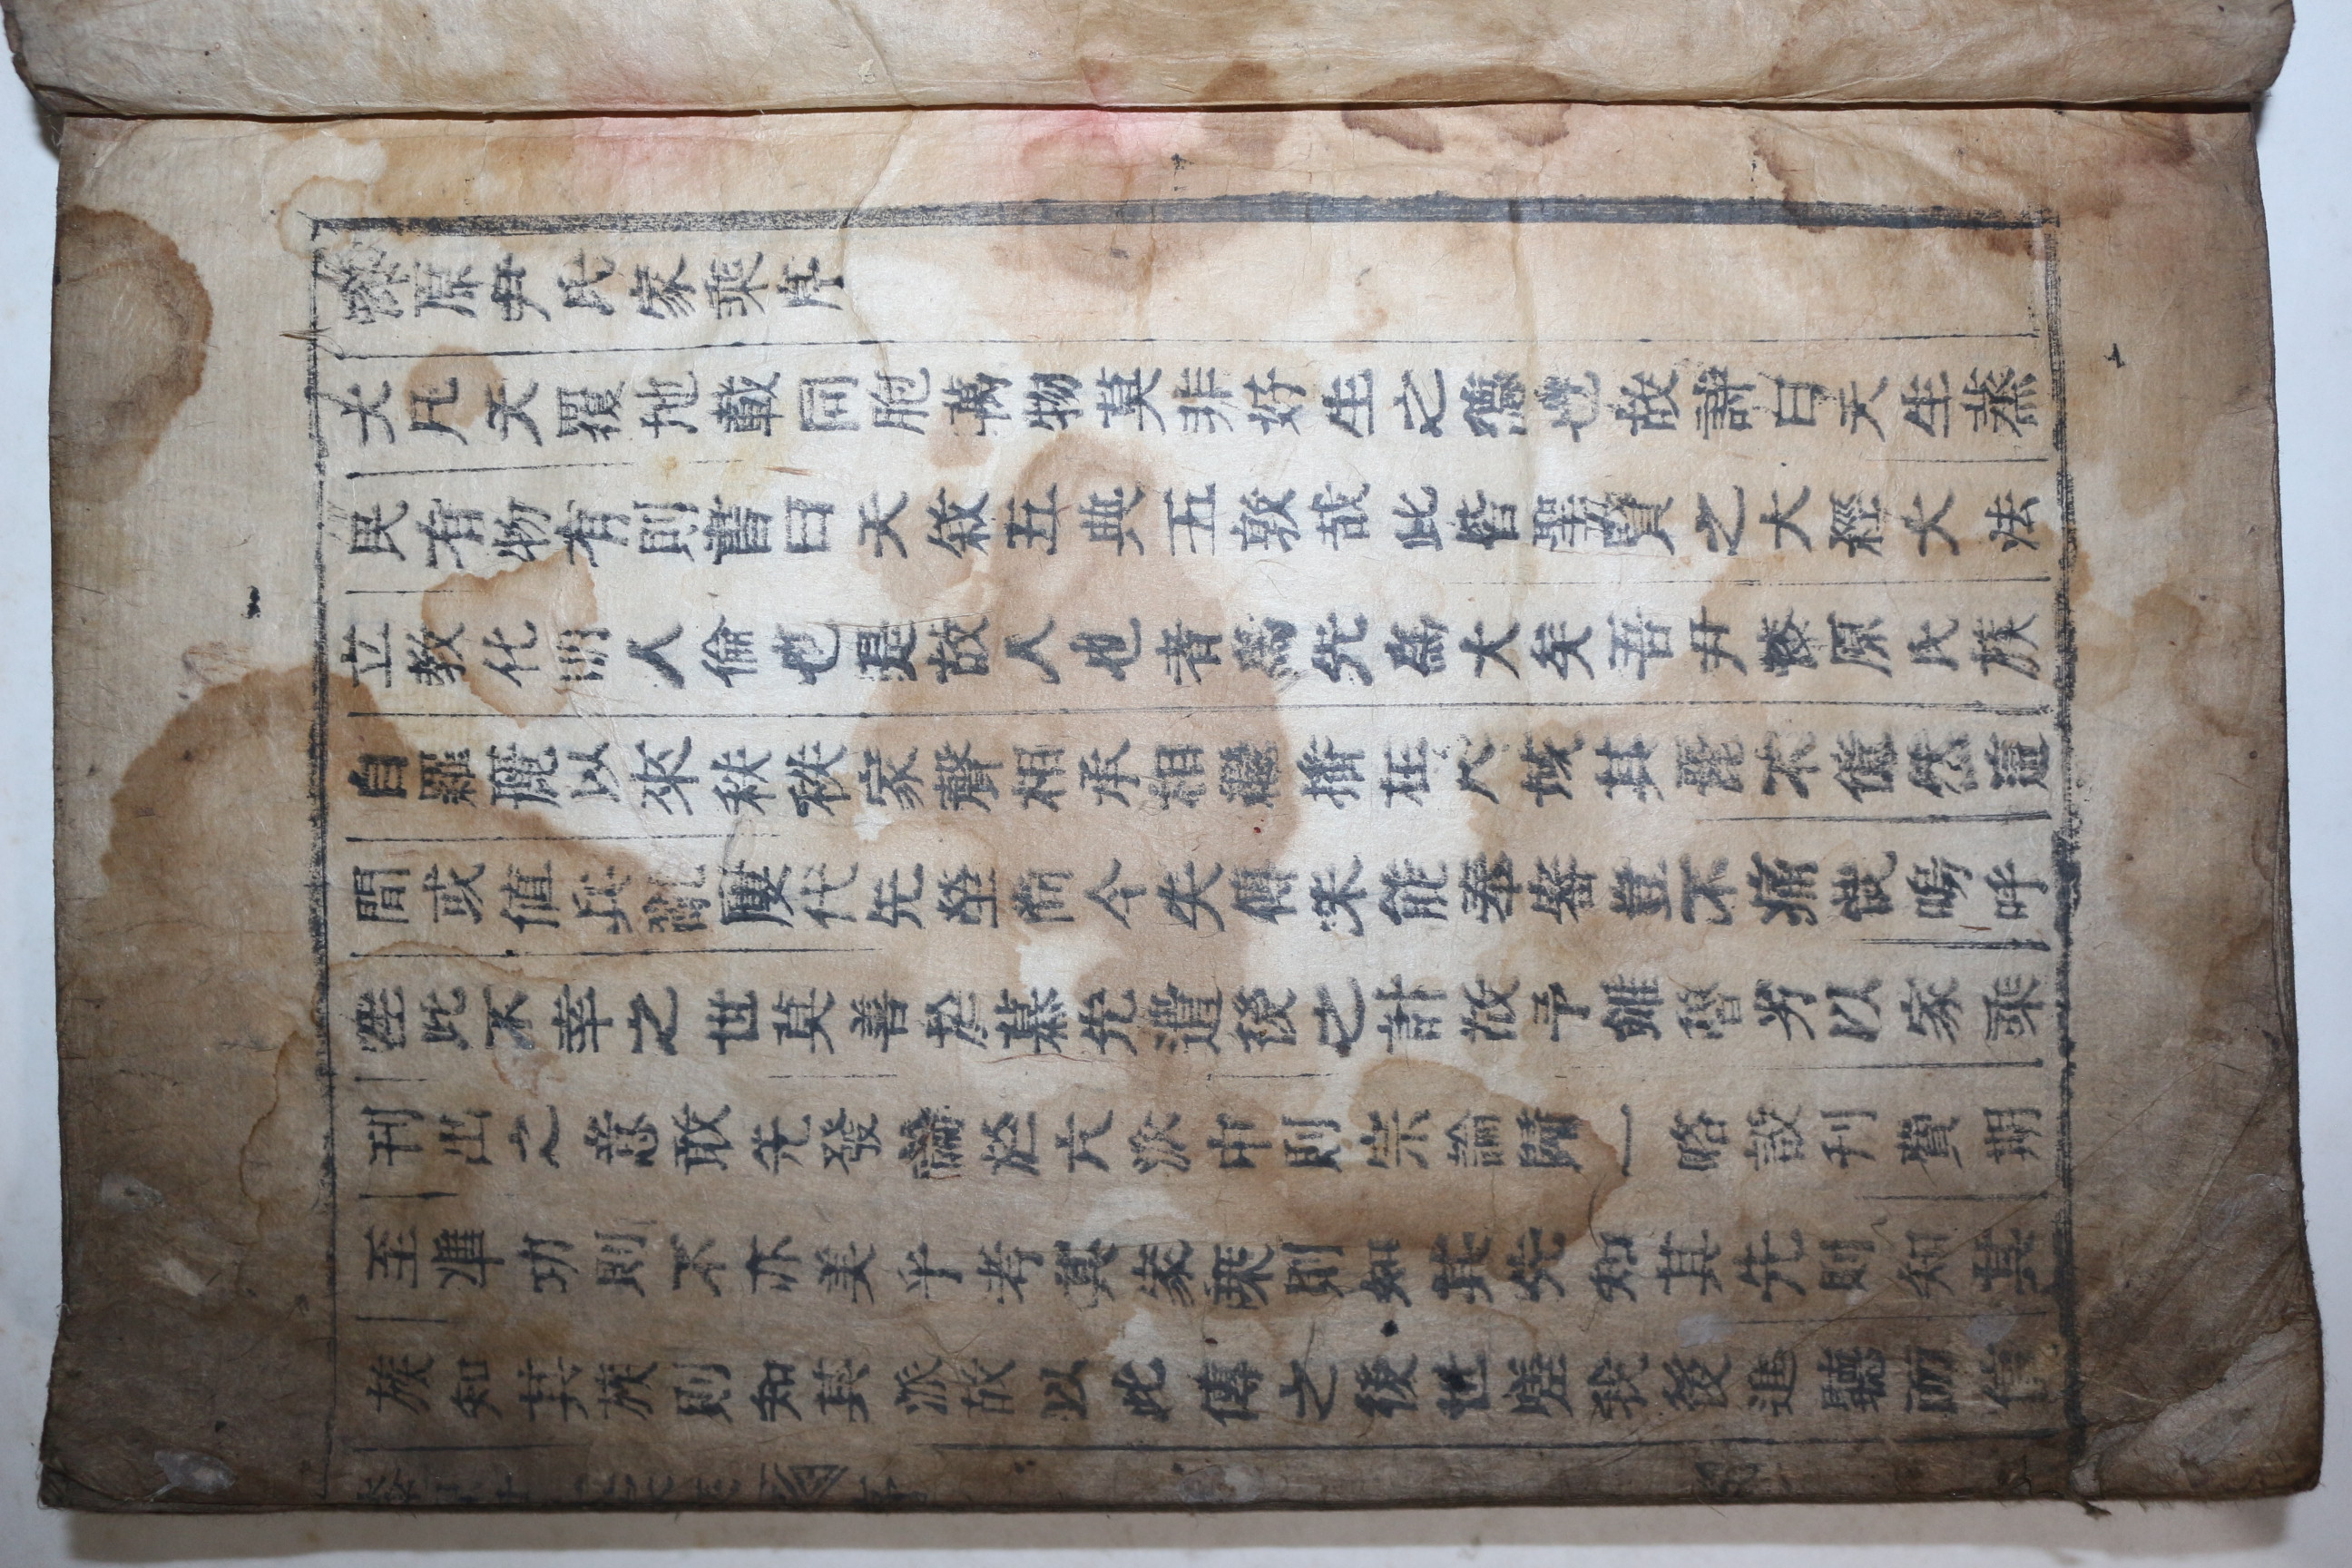 漆原尹氏家乘序
大凡天覆地載同胞萬物莫非好生之德也故詩曰天生蒸
民有物有則書曰天敘五典五敦哉此皆聖賢之大經大法
立教化明人倫也是故人也者爲先爲大矣吾尹漆原氏族
自羅麗以來秩秩家聲相承相繼播在人域其麗不億然這
間或値兵亂屢代先塋尙今失傳未能奉審豈不痛哉嗚呼
在此不幸之世莫善於慕先遺後之計故予雖昏劣以家乘
刊出之意敢先發論於六派中則宗論歸一略設刊費期
至準功則不亦美乎考其家乘則知其先知其先則知其
族知其族則知其派故以此傳之後世嗟我後進聽而信